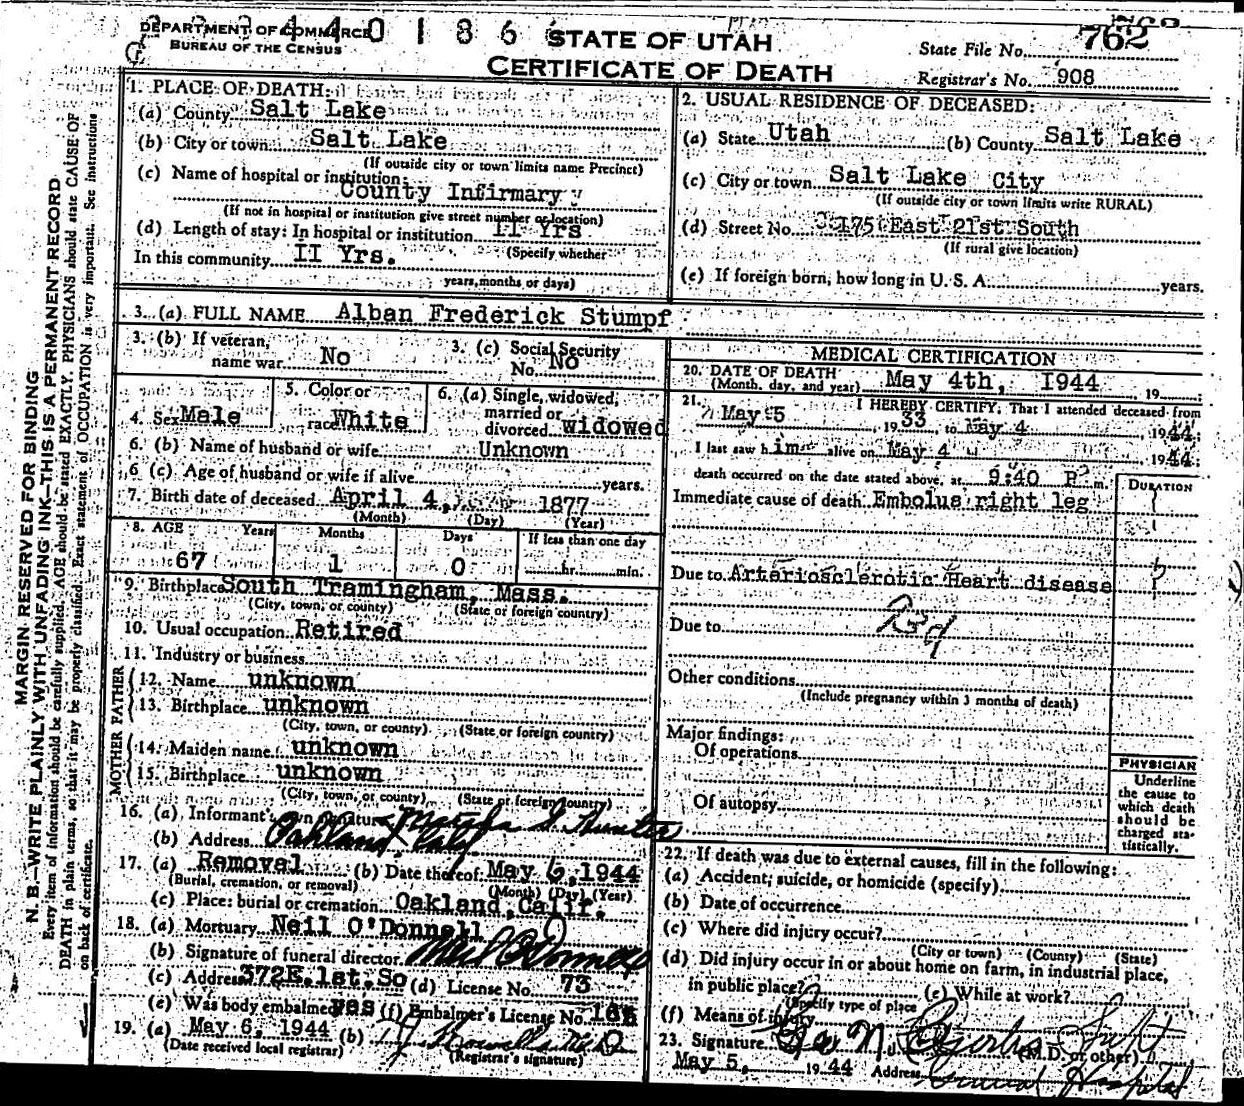 DEPARTMENT OF COMMERCE
BUREAU OF THE CENSUS
STATE OF UTAH
CERTIFICATE OF DEATH
State File No. 762
Registrar's No. 908
MARGIN RESERVED FOR BINDING
N. B.—WRITE PLAINLY WITH UNFADING INK—THIS IS A PERMANENT RECORD
Every item of information should be carefully supplied. AGE should be stated EXACTLY. PHYSICIANS should state CAUSE OF
DEATH in plain terms, so that it may be properly classified. Exact statement of OCCUPATION is very important. See instructions
on back of certificate.
1. PLACE OF DEATH:
(a) County Salt Lake
(b) City or town Salt Lake
(If outside city or town limits name Precinct)
(c) Name of hospital or institution:
County Infirmary
(If not in hospital or institution give street number or location)
(d) Length of stay: In hospital or institution II Yrs
(Specify whether
In this community II Yrs.
years, months or days)
2. USUAL RESIDENCE OF DECEASED:
(a) State Utah (b) County Salt Lake
(c) City or town Salt Lake City
(If outside city or town limits write RURAL)
(d) Street No. 175 East 21st South
(If rural give location)
(e) If foreign born, how long in U. S. A. years.
3. (a) FULL NAME Alban Frederick Stumpf
3. (b) If veteran,
name war No
3. (c) Social Security
No. No
4. Sex Male
5. Color or
race White
6. (a) Single, widowed,
married or
divorced widowed
6. (b) Name of husband or wife Unknown
6 (c) Age of husband or wife if alive years.
7. Birth date of deceased April 4, 1877
(Month) (Day) (Year)
8. AGE Years Months Days If less than one day
67 1 0 hr. min.
9. Birthplace South Tramingham, Mass.
(City, town, or county) (State or foreign country)
10. Usual occupation Retired
11. Industry or business
FATHER
12. Name unknown
13. Birthplace unknown
(City, town, or county) (State or foreign country)
MOTHER
14. Maiden name unknown
15. Birthplace unknown
(City, town, or county) (State or foreign country)
16. (a) Informant's own signature Hunter
(b) Address Oakland Calif
17. (a) Removal (b) Date thereof May 6, 1944
(Burial, cremation, or removal) (Month) (Day) (Year)
(c) Place: burial or cremation Oakland, Calif.
18. (a) Mortuary Neil O'Donnell
(b) Signature of funeral director Neil O'Donnell
(c) Address 372E. 1st. So (d) License No. 73
(e) Was body embalmed yes (f) Embalmer's License No.
19. (a) May 6, 1944 (b)
(Date received local registrar) (Registrar's signature)
MEDICAL CERTIFICATION
20. DATE OF DEATH
(Month, day, and year) May 4th, 1944 19
21. I HEREBY CERTIFY, That I attended deceased from
May 5 1933 to May 4, 1944;
I last saw h im alive on May 4 1944;
death occurred on the date stated above, at 9:40 P m.
DURATION
Immediate cause of death Embolus right leg
Due to Arteriosclerotic Heart disease
Due to
Other conditions
(Include pregnancy within 3 months of death)
Major findings:
Of operations
Of autopsy
PHYSICIAN
Underline
the cause to
which death
should be
charged sta-
tistically.
22. If death was due to external causes, fill in the following:
(a) Accident, suicide, or homicide (specify)
(b) Date of occurrence
(c) Where did injury occur?
(City or town) (County) (State)
(d) Did injury occur in or about home on farm, in industrial place,
in public place? (e) While at work?
(Specify type of place
(f) Means of injury
23. Signature N. Curtis Supt
(M.D. or other)
May 5, 1944 Address General Hospital